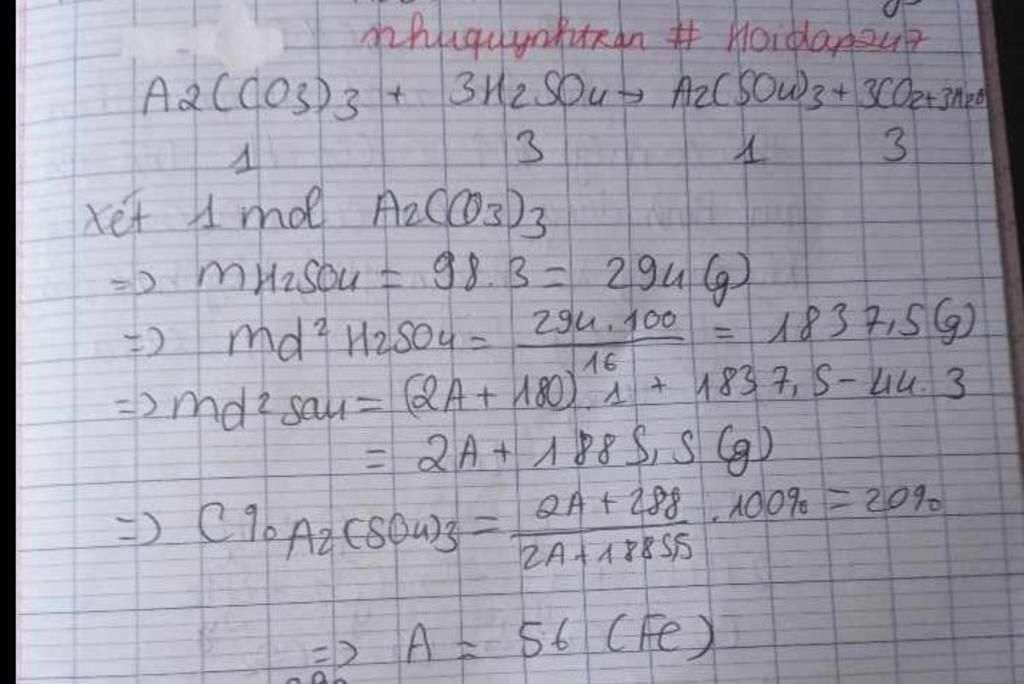 nhuquynhtran # Hoidap247
A2(CO3)3 + 3H2SO4 → A2(SO4)3 + 3CO2+3H2O
1 3 1 3
Xét 1 mol A2(CO3)3
=> mH2SO4 = 98.3 = 294 (g)
=> md² H2SO4 = 294.100/16 = 1837,5(g)
=> md² sau = (2A + 180).1 + 1837,5 - 44.3
= 2A + 1885,5 (g)
=> C%A2(SO4)3 = 2A + 288/2A+1885,5 .100% = 20%
=> A = 56 (Fe)